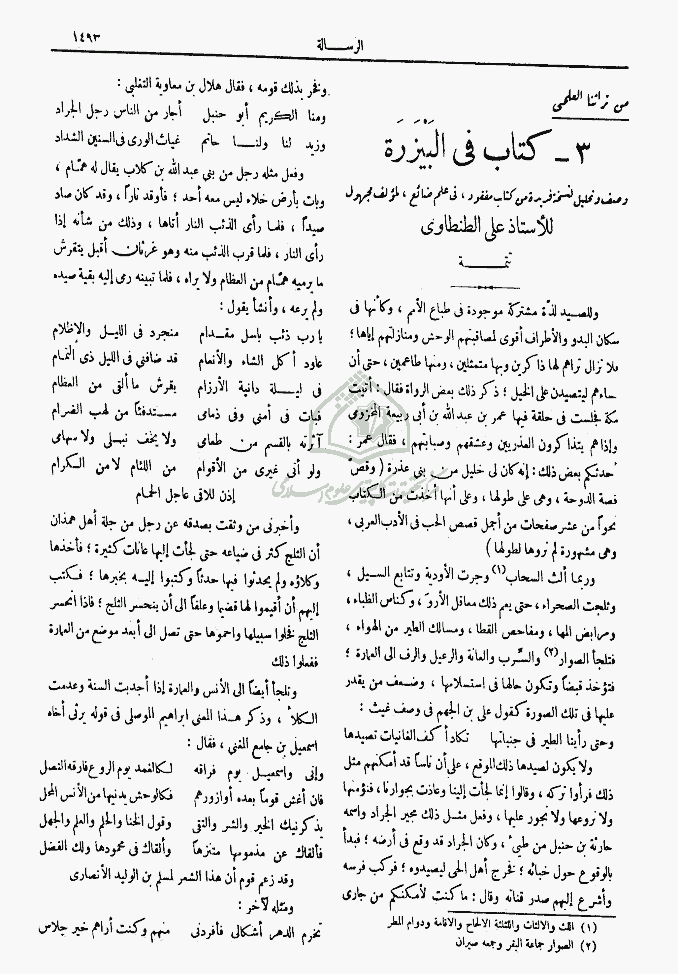 ١٤٩٣
الرسالة
من تراثنا العلمي
٣ ـ كتاب في البَيْزَرَة
وصف وتحليل لنسخة فريدة من كتاب مفقود، في علم ضائع، لمؤلف مجهول
للأستاذ علي الطنطاوي
تتمة
وللصيد لذة مشتركة موجودة في طباع الأمم، وكأنها في
سكان البدو والأطراف أقوى لمصاقبتهم الوحش ومنازلتهم إياها؛
فلا تزال تراهم لها ذاكرين وبها متمثلين، ومنها طاعمين، حتى أن
نساءهم ليتصيدن على الخيل؛ ذكر ذلك بعض الرواة فقال: أتيت
مكة فجلست في حلقة فيها عمر بن عبد الله بن أبي ربيعة المخزومي
وإذا هم يتذاكرون العذريين وعشقهم وصبابتهم، فقال عمر:
أحدثكم بعض ذلك: إنه كان لي خليل من بني عذرة ( وقصّ
قصة الدوحة، وهي على طولها، وعلى أنها أخذت من الكتاب
نحواً من عشر صفحات من أجمل قصص الحب في الأدب العربي،
وهي مشهورة لم نروها لطولها )
وربما ألث السحاب (١) وجرت الأودية وتتابع السيل،
وثلجت الصحراء، حتى يعم ذلك معاقل الأروَى، وكناس الظباء،
ومرابض المها، ومفاحص القطا، ومسالك الطير من الهواء،
فتلجأ الصوار (٢) والسِّرب والعانة والرعيل والرف الى العمارة؛
فتؤخذ قبضاً وتكون حالها في استسلامها، وضعف من يقدر
عليها في تلك الصورة كقول علي بن الجهم في وصف غيث:
وحتى رأينا الطير في جنباتها تكاد أكف الغانيات تصيدها
ولا يكون لصيدها ذلك الموقع، على أن ناساً قد أمكنهم مثل
ذلك فرأوا تركه، وقالوا إنما لجأت إلينا وعاذت بجوارنا، فنؤمنها
ولا نروعها ولا نجور عليها، وفعل مثل ذلك مجير الجراد واسمه
حارثة بن حنبل من طيء، وكان الجراد قد وقع في أرضه؛ فبدأ
بالوقوع حول خبائه؛ فخرج أهل الحي ليصيدوه؛ فركب فرسه
وأشرع إليهم صدر قناته وقال: ما كنت لأمكنكم من جاري
(١) الث والالثاث واللثلثة الالحاح والاقامة ودوام المطر
(٢) الصوار جماعة البقر وجمعه صيران
وفخر بذلك قومه، فقال هلال بن معاوية الثعلبي:
ومنا الكريم أبو حنبل أجار من الناس رجل الجراد
وزيد لنا ولنا حاتم غياث الورى في السنين الشداد
وفعل مثله رجل من بني عبد الله بن كلاب يقال له همّام،
وبات بأرض خلاء ليس معه أحد؛ فأوقد ناراً، وقد كان صاد
صيداً، فلما رأى الذئب النار أتاها، وذلك من شأنه إذا
رأى النار، فلما قرب الذئب منه وهو غرثان أقبل يتقرش
ما يرميه همّام من العظام ولا يراه، فلما تبينه رمى إليه بقية صيده
ولم يرعه، وأنشأ يقول:
يا رب ذئب باسل مقدام منجرد في الليل والإظلام
عاود أكل الشاء والأنعام قد ضافني في الليل ذي التمام
في ليلة دانية الأرزام يقرش ما ألقى من العظام
فبات في أمني وفي ذمامي مستدفئاً من لهب الضرام
آثرته بالقسم من طعامي ولا يخف نبلي ولا سهامي
ولو أتى غيري من الأقوام من اللئام لا من الكرام
إذن للاقى عاجل الحمام
وأخبرني من وثقت بصدقه عن رجل من جلة أهل همذان
أن الثلج كثر في ضياعه حتى لجأت إليها عانات كثيرة؛ فأخذها
وكلاؤه ولم يحدثوا فيها حدثاً وكتبوا إليه بخبرها؛ فكتب
إليهم أن أقيموا لها قضيما وعلفاً الى أن ينحسر الثلج؛ فاذا انحسر
الثلج فخلوا سبيلها واحموها حتى تصل الى أبعد موضع من العمارة
ففعلوا ذلك
وتلجأ أيضاً الى الأنس والعمارة إذا أجدبت السنة وعدمت
الكلأ، وذكر هذا المعنى ابراهيم الموصلي في قوله يرثي أخاه
اسمعيل بن جامع المغني، فقال:
وإني واسمعيل يوم فراقه لكالغمد يوم الروع فارقه النصل
فان أغش قوماً بعده أو أزورهم فكالوحش يدنيها من الأنس المحل
يذكرنيك الخير والشر والتقى وقول الخنا والحلم والعلم والجهل
فألقاك عن مذمومها متنزهاً وألقاك في محمودها ولك الفضل
وقد زعم قوم أن هذا الشعر لمسلم بن الوليد الأنصاري
ومثله لآخر:
تخرم الدهر أشكالي فأفردني منهم وكنت أراهم خير جلاس